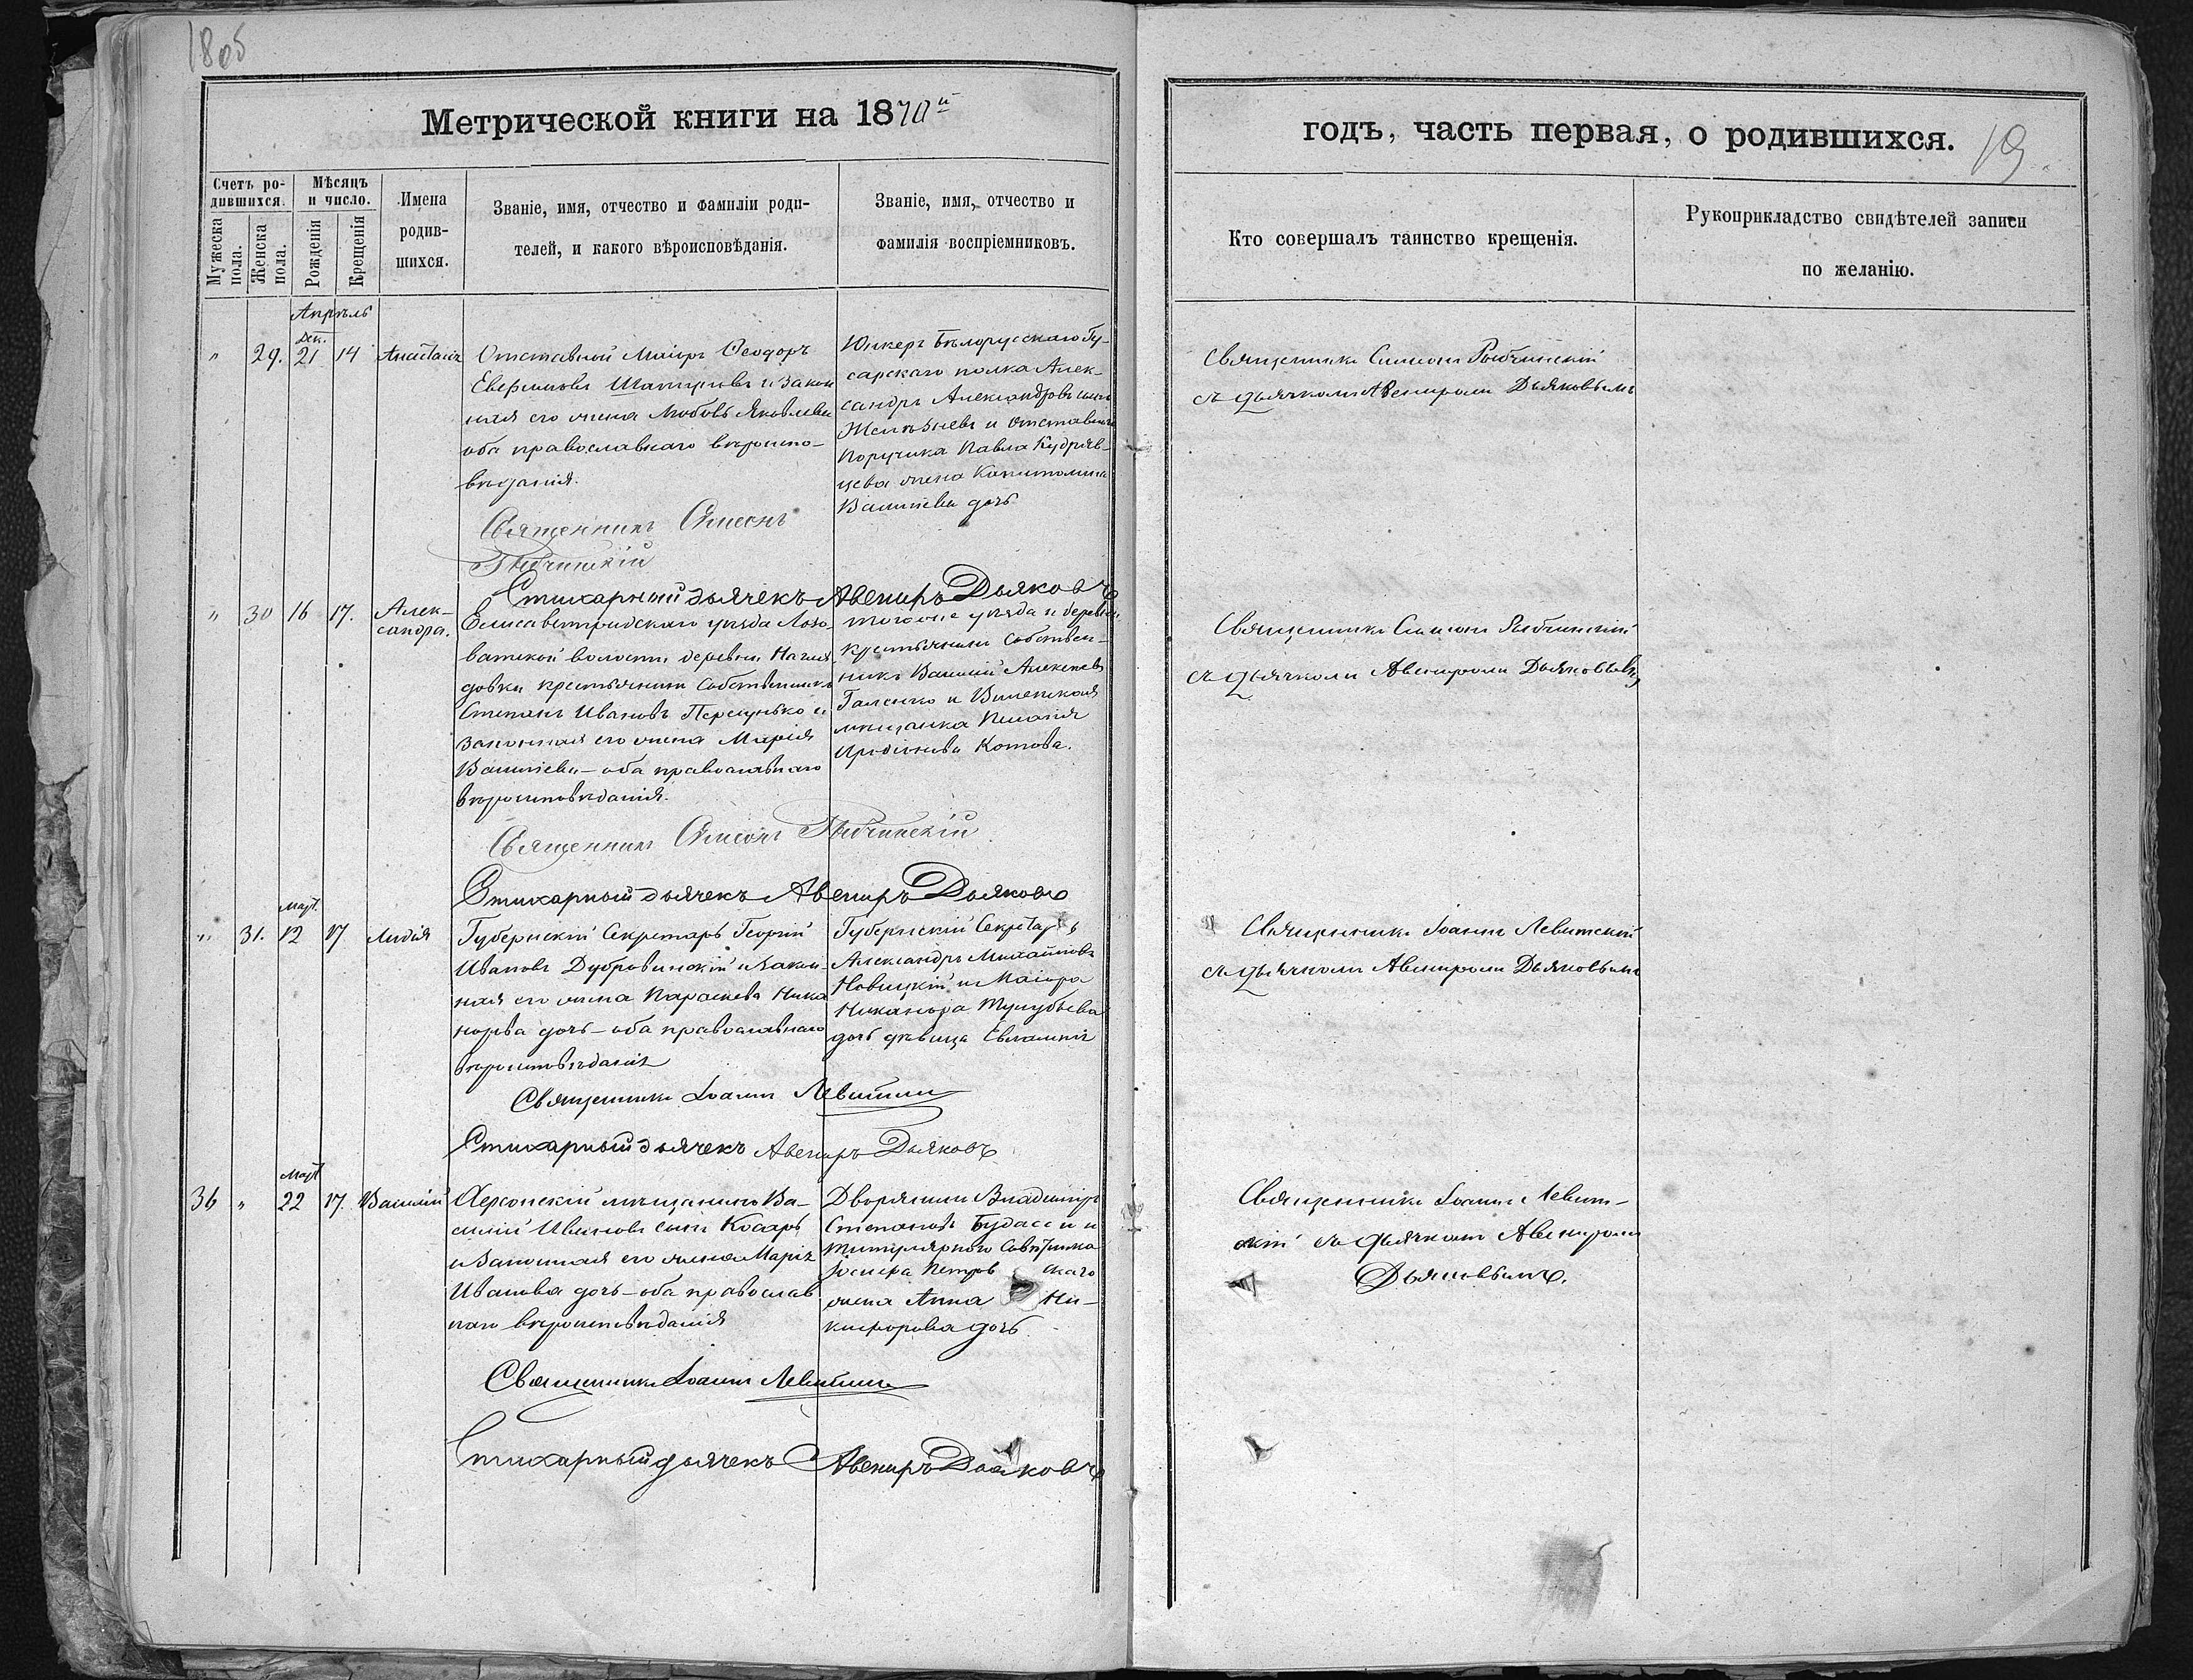 1805
Метрической книги на 1870й
годъ, часть первая, о родившихся.
19
Счетъ родившихся.
Мужеска пола.
Женска пола.
Мѣсяцъ и число.
Рожденія
Крещенія
Имена родившихся.
Званіе, имя, отчество и фамиліи роди-
телей, и какого вѣроисповѣданія.
Званіе, имя, отчество и
фамилія воспріемниковъ.
Кто совершалъ таинство крещенія.
Рукоприкладство свидѣтелей записи
по желанію.
Апрѣль
Дек.
" 29. 21 14 Анастасія
Отставной Маіоръ Ѳеодоръ
Евфимовъ и закон
ная его жена Любовь Яковлева
оба православнаго вѣроиспо-
вѣданія.
Юнкеръ Бѣлорусскаго Гу-
сарскаго полка Алек-
сандръ Александровъ сынъ
и отставнаго
Поручика Павла Кудряв-
цева жена Капитолина
Васильева дочь
Священникъ Симеонъ
с дьячкомъ Авениромъ Дьяковымъ
Священникъ Симеонъ
Стихарный дьячекъ Авениръ Дьяковъ
" 30 16 17. Алек-
сандра.
Елисаветградскаго уѣзда Лозо-
ватской волости деревни
довки крестьянинъ Собственникъ
Степанъ Ивановъ и
законная его жена Марія
Васильева – оба православнаго
вѣроисповѣданія.
того же уѣзда и деревни
крестьянинъ Собствен-
никъ Василій Алексеевъ
Галенко и
мещанка Пелагія
Котова.
Священникъ Симеонъ
съ дьячкомъ Авениромъ Дьяковымъ
Священникъ Симеонъ
Стихарный дьячекъ Авениръ Дьяковъ
март.
" 31. 12 17 Лидія
Губернскій Секретарь Георгій
Ивановъ Дубровинскій и закон-
ная его жена Параскева Ника
норова дочь – оба православнаго
вѣроисповѣданія
Губернскій Секретарь
Александръ Михайловъ
Новицкій и Маіора
Никанора
дочь дѣвица Евлампія
Священникъ Іоаннъ Левитскій
съ дьячкомъ Авениромъ Дьяковымъ
Священникъ Іоаннъ
Стихарный дьячекъ Авениръ Дьяковъ
март
36 " 22 17. Василій
Херсонскій мѣщанинъ Ва-
силій Ивановъ сынъ Косарь
и законная его жена Марія
Иванова дочь – оба православ
наго вѣроисповѣданія
Дворянинъ Владиміръ
Степановъ и
титулярнаго Совѣтника
Петров скаго
жена Анна Ни-
кифорова дочь.
Священникъ Іоаннъ Левит-
скій съ дьячкомъ Авениромъ
Дьяковымъ.
Священникъ Іоаннъ
Стихарный дьячекъ Авениръ Дьяковъ